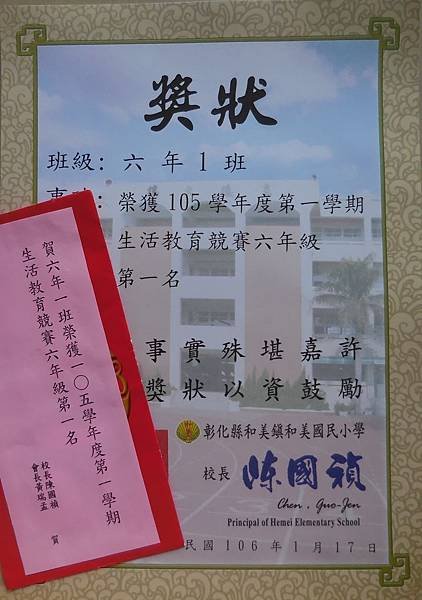 獎狀
班級：六年1班
事：榮獲105學年度第一學期
生活教育競賽六年級
第一名
事實殊堪嘉許
獎狀以資鼓勵
彰化縣和美鎮和美國民小學
校長 陳國禎
Chen, Guo-Jen
Principal of Hemei Elementary School
民國106年1月17日
賀六年一班榮獲一○五學年度第一學期
生活教育競賽六年級第一名
校長陳國禎
會長黃瑞孟
賀